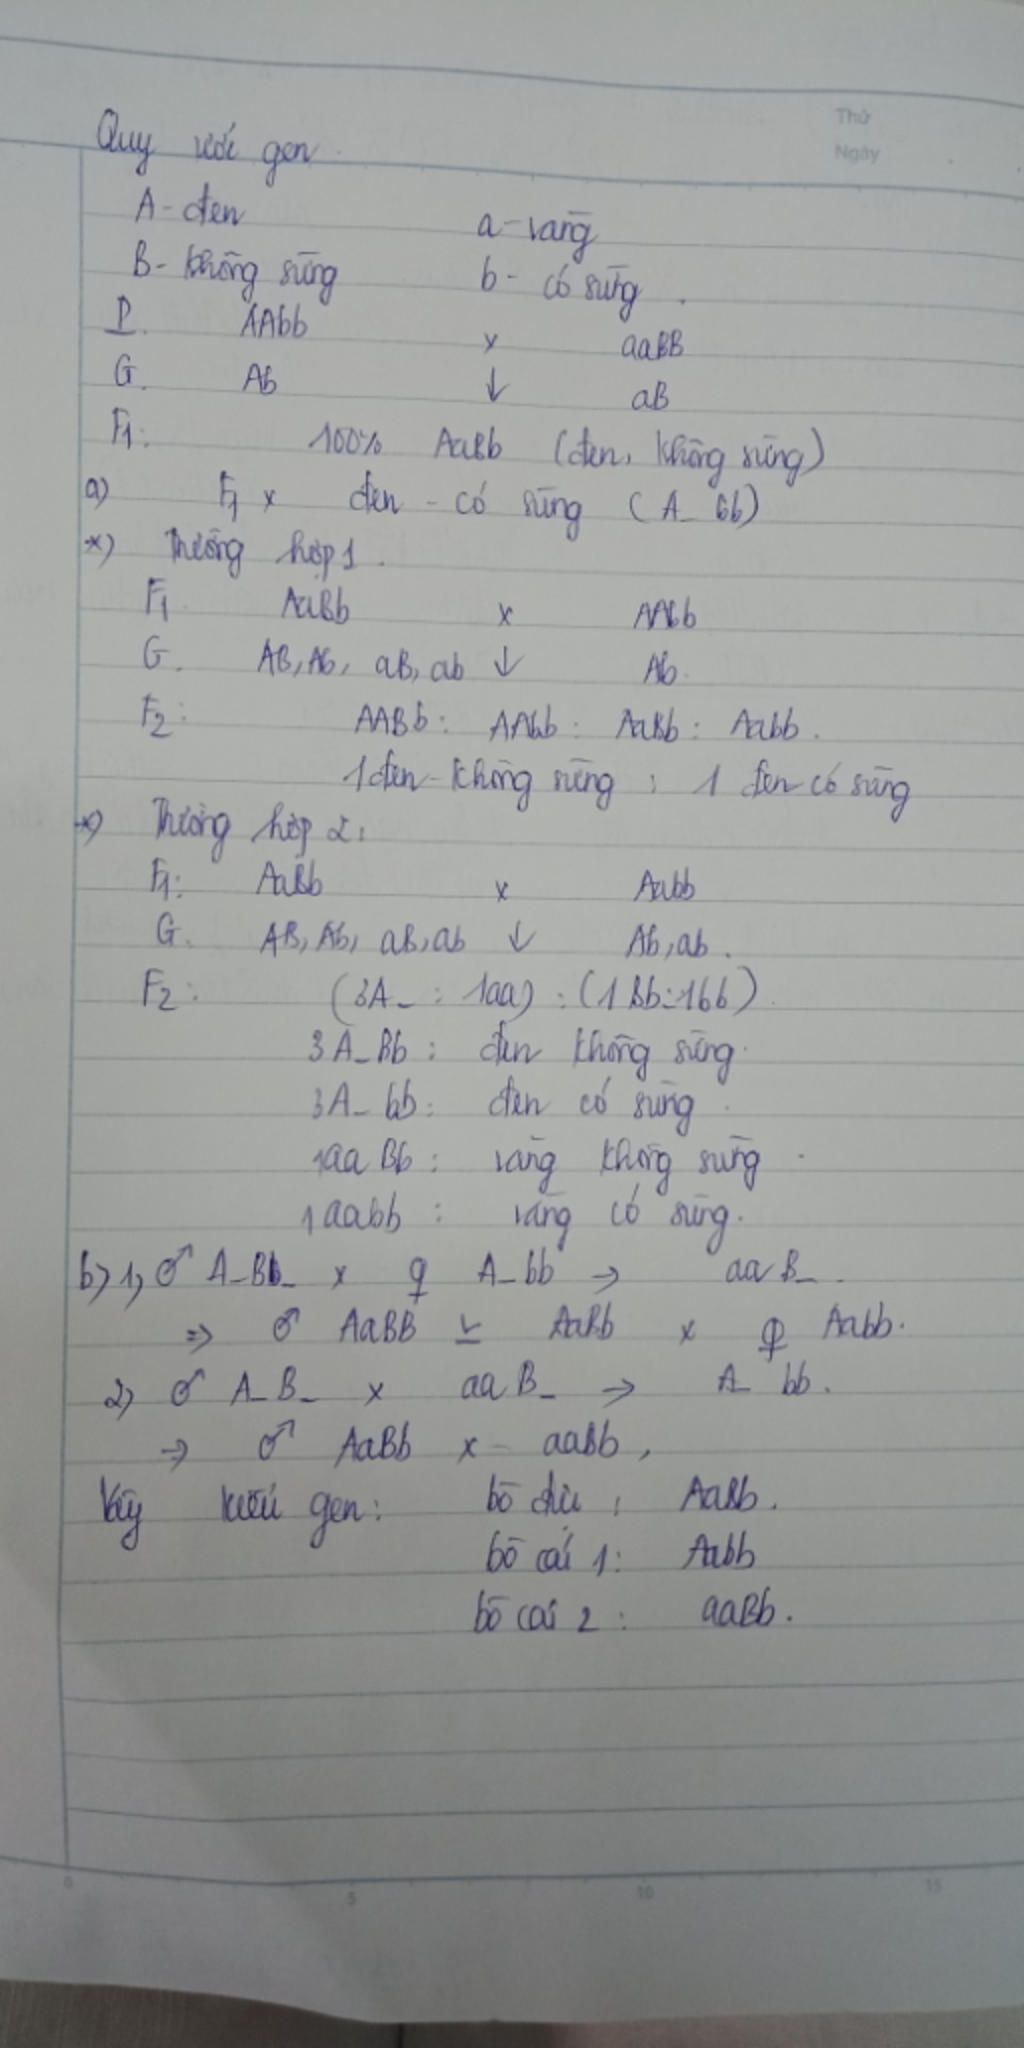 Thứ
Ngày
Quy ước gen
A - đen a - vàng
B - không sừng b - có sừng.
P. AAbb x aaBB
G. Ab ↓ aB
F1: 100% AaBb (đen, không sừng)
a) F1 x đen - có sừng (A_bb)
*) Trường hợp 1.
F1 AaBb x AAbb
G. AB, Ab, aB, ab ↓ Ab.
F2: AABb : AAbb : AaBb : Aabb.
1 đen - không sừng : 1 đen có sừng
*) Trường hợp 2:
F1: AaBb x Aabb
G. AB, Ab, aB, ab ↓ Ab, ab.
F2: (3A_ : 1aa) : (1Bb : 1bb)
3A_Bb : đen không sừng.
3A_bb : đen có sừng.
1aaBb : vàng không sừng.
1aabb : vàng có sừng.
b) 1, ♂ A_Bb_ x ♀ A_bb → aaB_.
⇒ ♂ AaBB v AaBb x ♀ Aabb.
2) ♂ A_B_ x aaB_ → A_bb.
→ ♂ AaBb x - aaBb,
Vậy kiểu gen: bò đực : AaBb.
bò cái 1: Aabb
bò cái 2: aaBb.
0 5 10 15